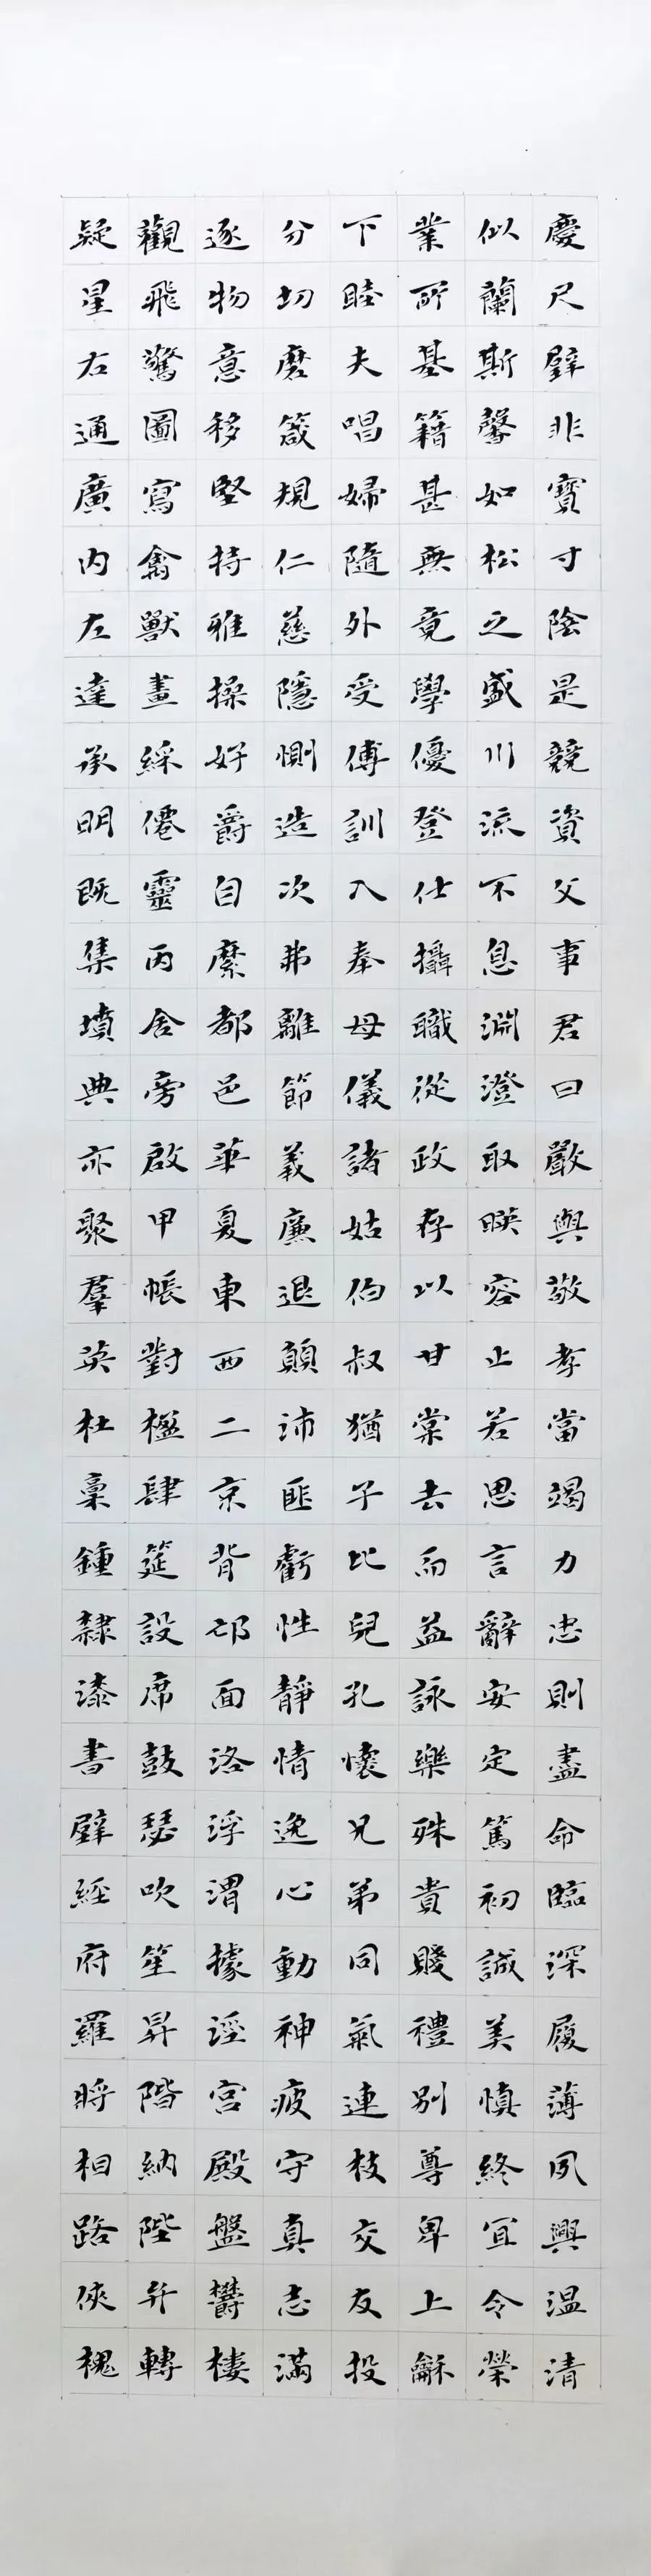 慶尺璧非寶寸陰是競資父事君曰嚴與敬孝當竭力忠則盡命臨深履薄夙興温清
似蘭斯馨如松之盛川流不息淵澄取暎容止若思言辭安定篤初誠美慎終宜令榮
業所基籍甚無竟學優登仕攝職從政存以甘棠去而益詠樂殊貴賤禮別尊卑上龢
下睦夫唱婦隨外受傅訓入奉母儀諸姑伯叔猶子比兒孔懷兄弟同氣連枝交友投
分切磨箴規仁慈隱惻造次弗離節義廉退顛沛匪虧性靜情逸心動神疲守真志滿
逐物意移堅持雅操好爵自縻都邑華夏東西二京背邙面洛浮渭據涇宮殿盤鬱樓
觀飛驚圖寫禽獸畫綵僊靈丙舍旁啟甲帳對楹肆筵設席鼓瑟吹笙昇階納陛弁轉
疑星右通廣內左達承明既集墳典亦聚羣英杜稾鍾隸漆書壁經府羅將相路俠槐